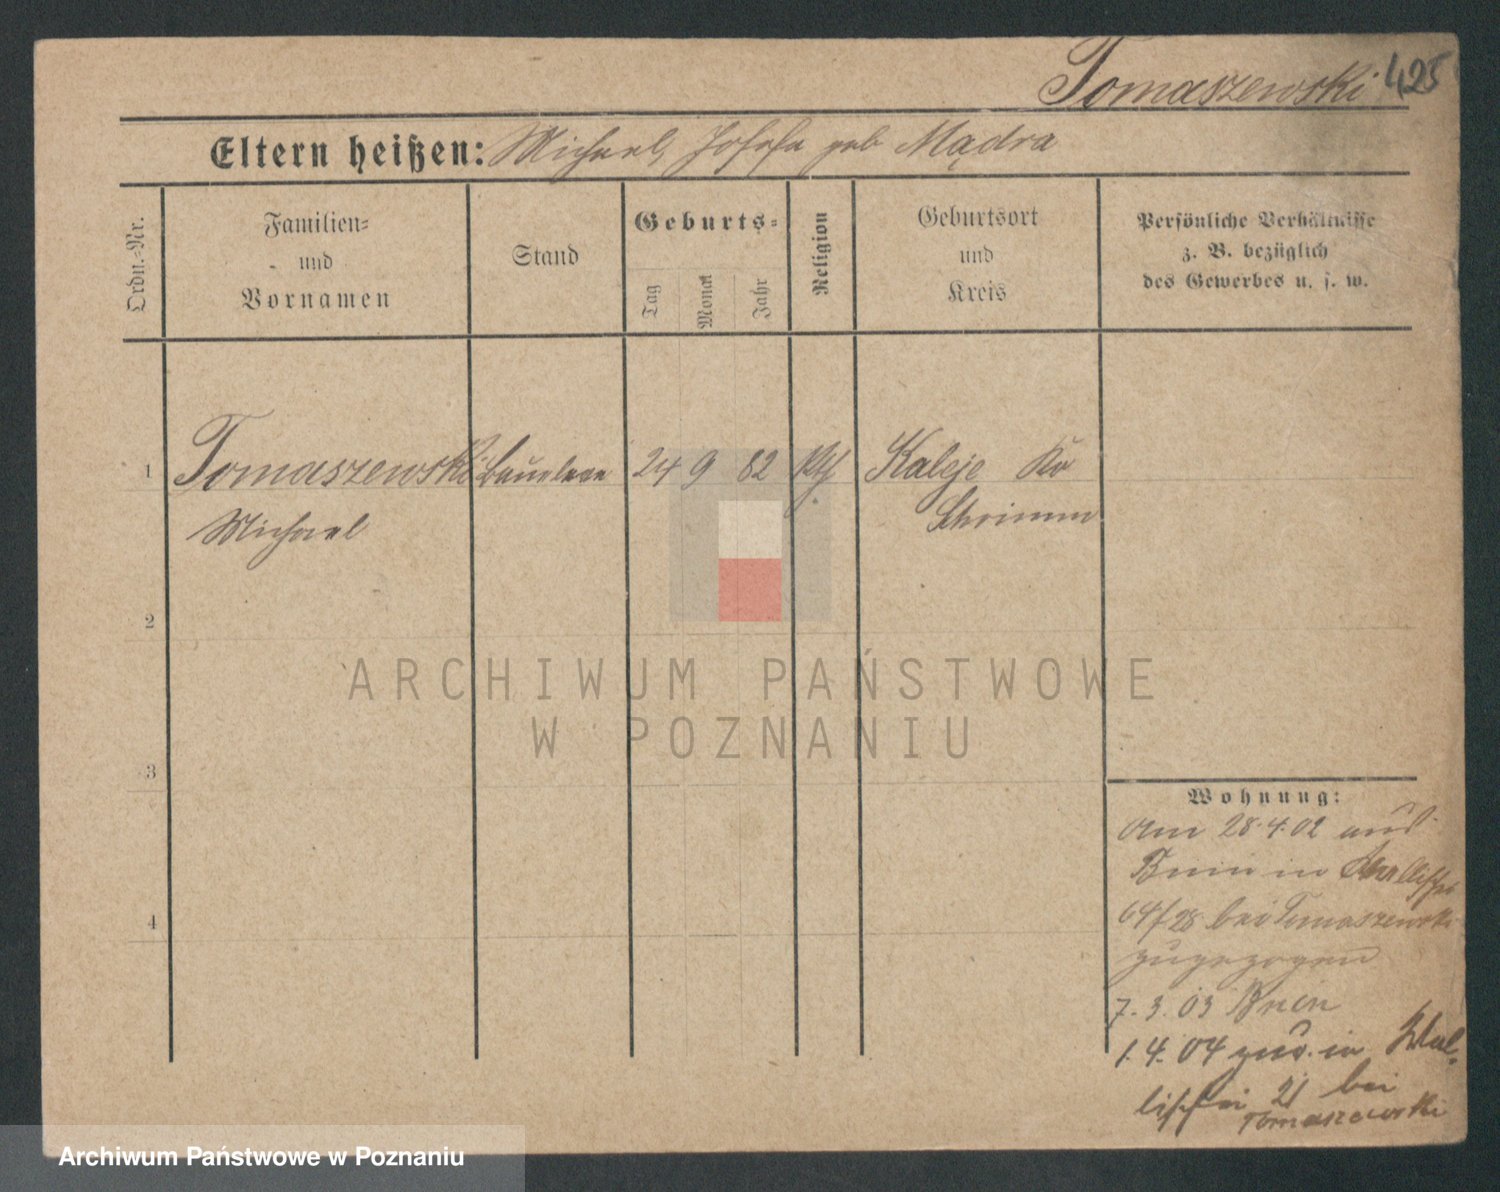 Tomaszewski 425
Eltern heißen: Michael, Josefa geb Mądra
Ordn.-Nr.
Familien-
und
Vornamen
Stand
Geburts-
Tag
Monat
Jahr
Religion
Geburtsort
und
Kreis
Persönliche Verhältnisse
z. B. bezüglich
des Gewerbes u. s. w.
1 Tomaszewski 24 9 82 Kth Kaleje Kr
Michael Schrimm
2
3
4
Wohnung:
Am 28.4.02 aus
Bnin in Wallischei
64/28 bei Tomaszewski
zugezogen
7.3.03 Bnin
1.4.04 zur. in Wal-
lischei 21 bei
Tomaszewski
ARCHIWUM PAŃSTWOWE
W POZNANIU
Archiwum Państwowe w Poznaniu